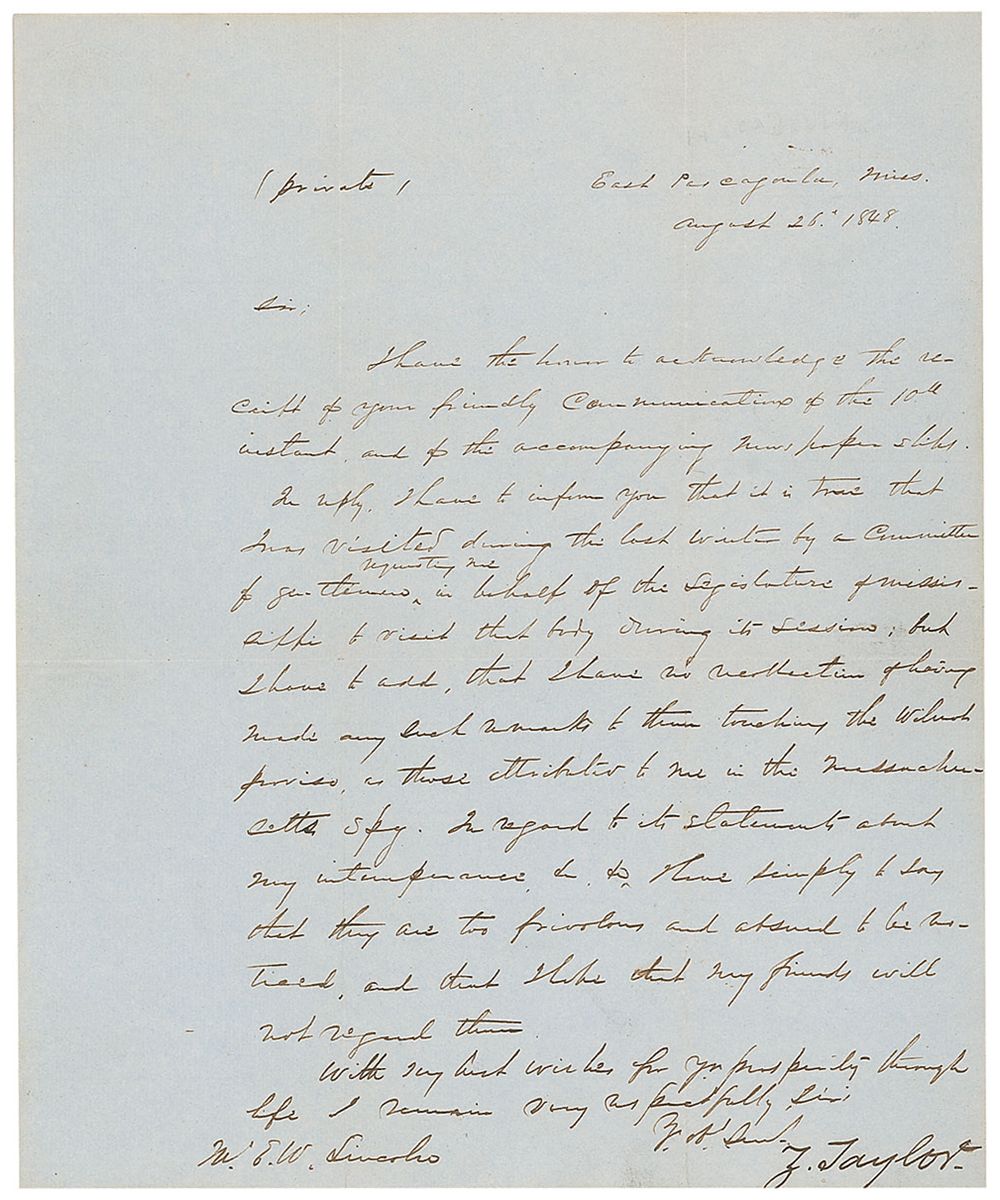 (private)
East Pascagoula, Miss.
August 26. 1848.
Sir,
I have the honor to acknowledge the re-
ceipt of your friendly communication of the 10th
instant, and of the accompanying newspaper slips.
In reply, I have to inform you that it is true that
I was visited during the last winter by a Committee
requesting me
of gentlemen, in behalf of the Legislature of missis-
sippi to visit that body during its session; but
I have to add, that I have no recollection of having
made any such remarks to them touching the Wilmot
proviso, as those attributed to me in the Massachu-
setts Spy. In regard to its statements about
my intemperance, &c. &c, I have simply to say
that they are too frivolous and absurd to be no-
ticed, and that I hope that my friends will
not regard them.
With my best wishes for yr prosperity through
life I remain very respectfully Sir,
Yr. Ob. Servt.
Mr. E. W. Lincoln
Z. Taylor.